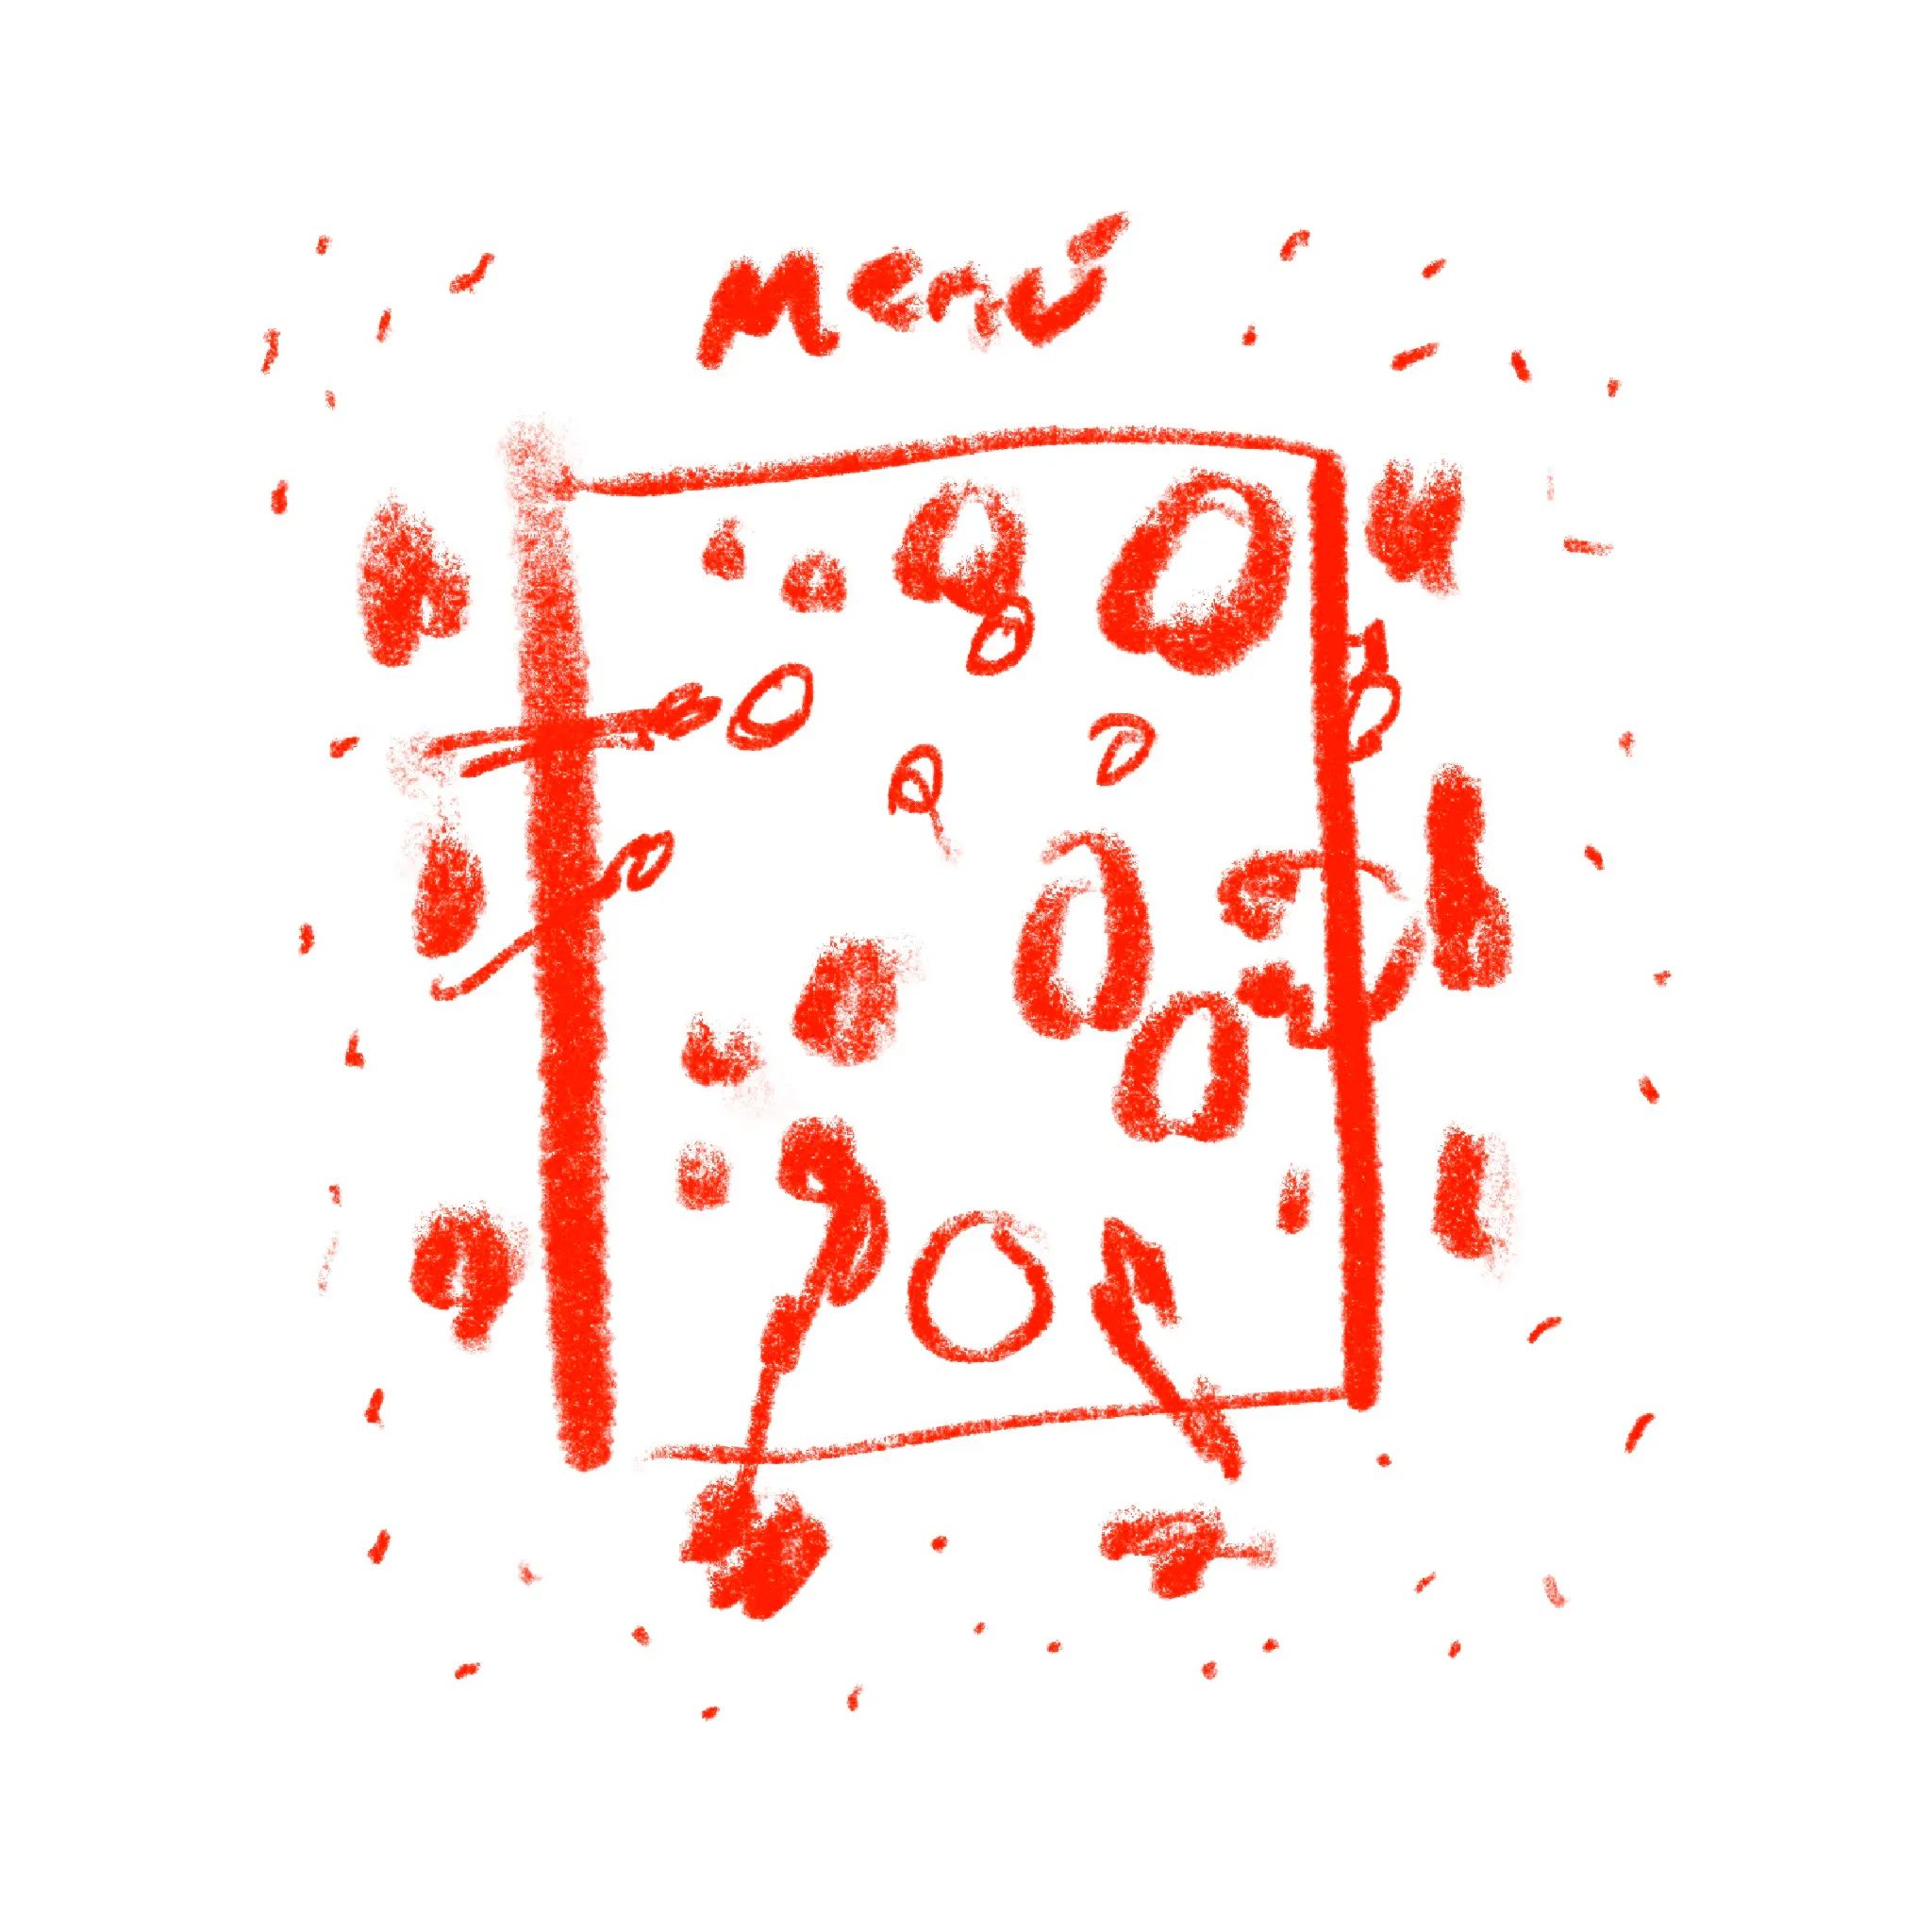 Menú